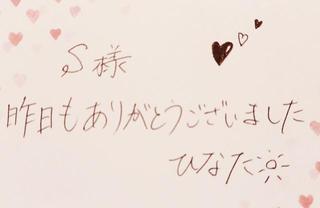 S様
昨日もありがとうございました
ひなた